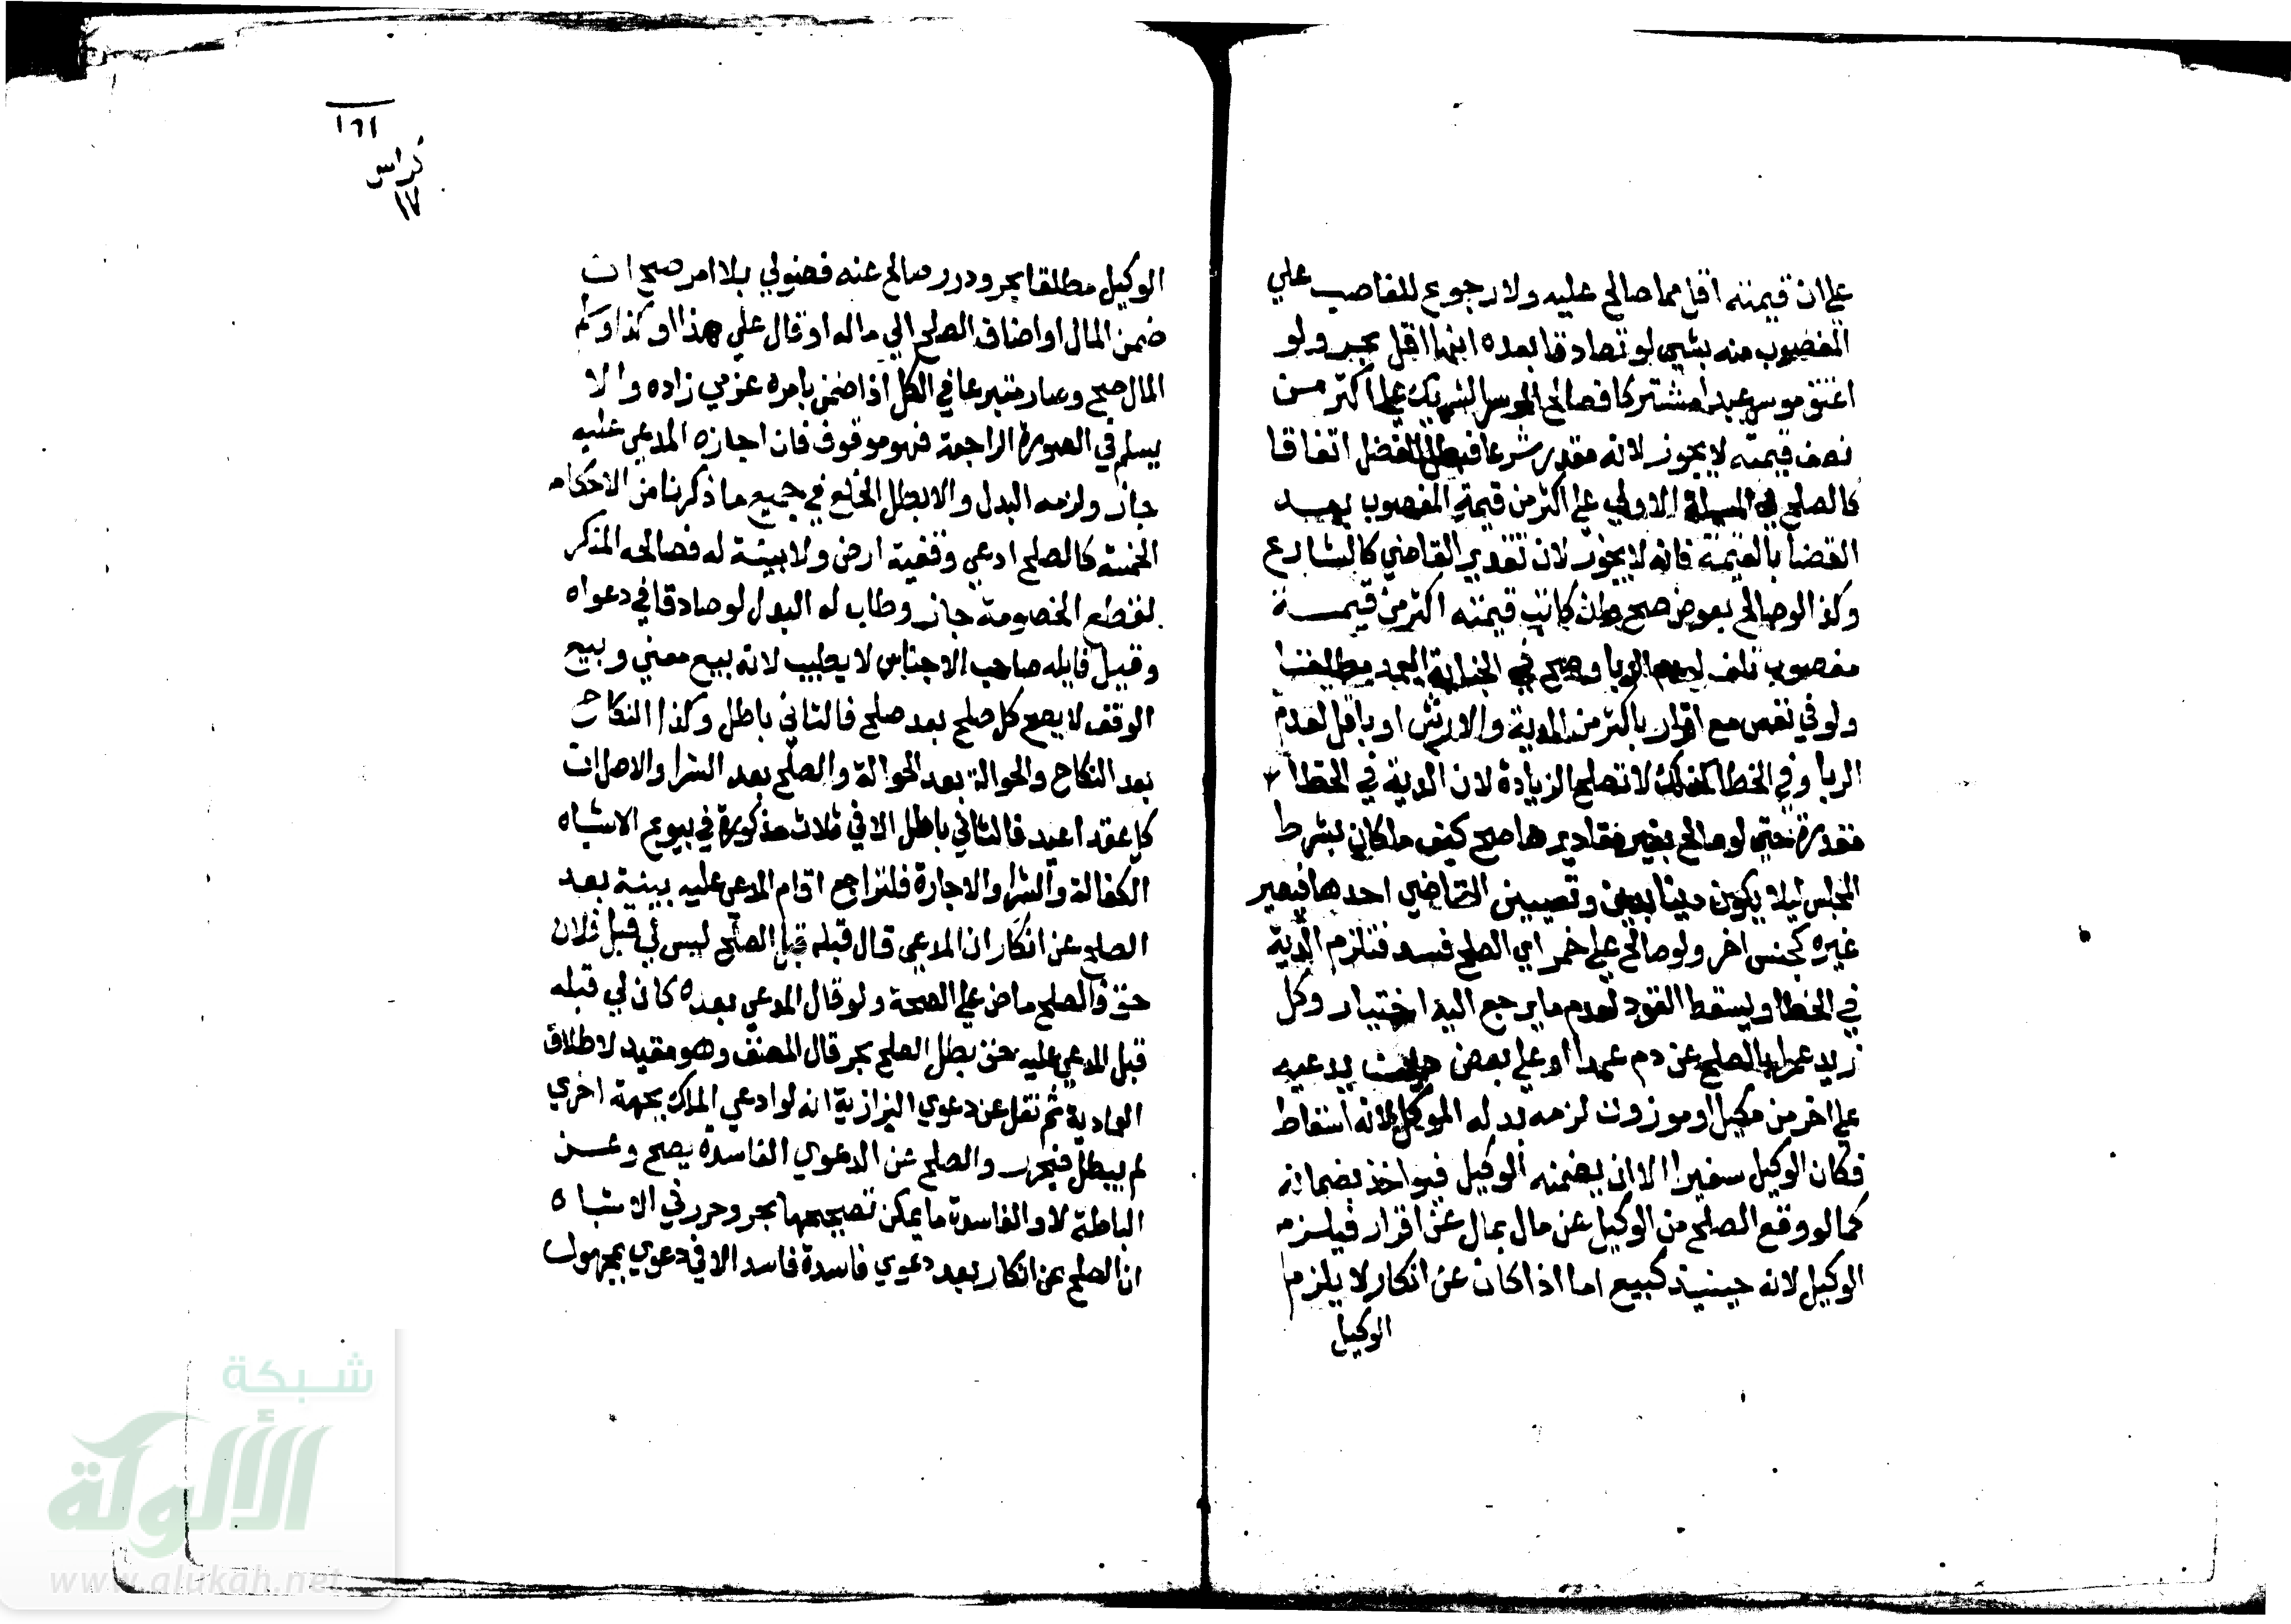 علي ان قيمته اقل مما صالح عليه ولا رجوع للغاصب علي
المغصوب منه بشي لو تصادقا بعده انها اقل بحر ولو
اعتق موسر عبدا مشتركا فصالح الموسر الشريك علي اكثر من
نصف قيمته لا يجوز لانه مقدر شرعا فبطل الفضل اتفاقا
كالصلح في المسيلة الاولي علي اكثر من قيمة المغصوب بعد
القضا بالقيمة فانه لا يجوز لان تقدير القاضي كالشارع
وكذا لو صالح بعوض صح وان كانت قيمته اكثر من قيمة
مغصوب تلف لعدم الربا وصح في الجناية العمد مطلقا
ولو في نفس مع اقرار باكثر من الدية والارش او باقل لعدم
الربا وفي الخطا كذلك لا تصلح الزيادة لان الدية في الخطا
مقدرة حتي لو صالح بغير مقاديرها صح كيف ما كان بشرط
المجلس ليلا يكون دينا بدين وتعيين القاضي احدها فيصير
غيره كجنس اخر ولو صالح علي خمر اي الصلح فسد فتلزم الدية
في الخطا ويسقط القود لعدم ما يرجع اليه اختيار وكل
زيد عمرا بالصلح عن دم عمدا او علي بعض دين يدعيه
علي اخر من مكيل او موزون لزمه بدله الموكل لانه اسقاط
فكان الوكيل سفيرا الا ان يضمنه الوكيل فيواخذ بضمانه
كما لو وقع الصلح من الوكيل عن مال بمال عن اقرار فيلزم
الوكيل لانه حينيذ كبيع اما اذا كان عن انكار لا يلزم
الوكيل
١٦١
كراس
١٧
الوكيل مطلقا بحر ودرر صالح عنه فضولي بلا امر صح ان
ضمن المال او اضاف الصلح الي ماله او قال علي هذا او كذا وسلم
المال صح وصار متبرعا في الكل اذا ضمن بامره عزمي زاده والا
يسلم في الصورة الراجعة فهو موقوف فان اجازه المدعي عليه
جاز ولزمه البدل والا بطل الخلع في جميع ما ذكرنا من الاحكام
الخمسة كالصلح ادعي وقفية ارض ولا بينة له فصالحه المنكر
لقطع الخصومة جاز وطاب له البدل لو صادقا في دعواه
وقيل قايله صاحب الاجناس لا يطيب لانه بيع معني وبيع
الوقف لا يصح كل صلح بعد صلح فالثاني باطل وكذا النكاح
بعد النكاح والحوالة بعد الحوالة والصلح بعد الشرا والاصل ان
كل عقد اعيد فالثاني باطل الا في ثلاث مذكورة في بيوع الاشباه
الكفالة والشرا والاجارة فلتراجع اقام المدعي عليه بينة بعد
الصلح عن انكار ان المدعي قال قبله قبل الصلح ليس لي قبل فلان
حق فالصلح ماض علي الصحة ولو قال المدعي بعده كان لي قبله
قبل المدعي عليه حق بطل الصلح بحر قال المصنف وهو مقيد لاطلاق
العادية ثم نقل عن دعوي البزازية انه لو ادعي الملك بجهة اخري
لم يبطل فيحرر والصلح عن الدعوي الفاسدة يصح وعن
الباطلة لا والفاسدة ما يمكن تصحيحها بحر وحرر في الاشباه
ان الصلح عن انكار بعد دعوي فاسدة فاسد الا في دعوي بمجهول
شبكة
الألوكة
www.alukah.net